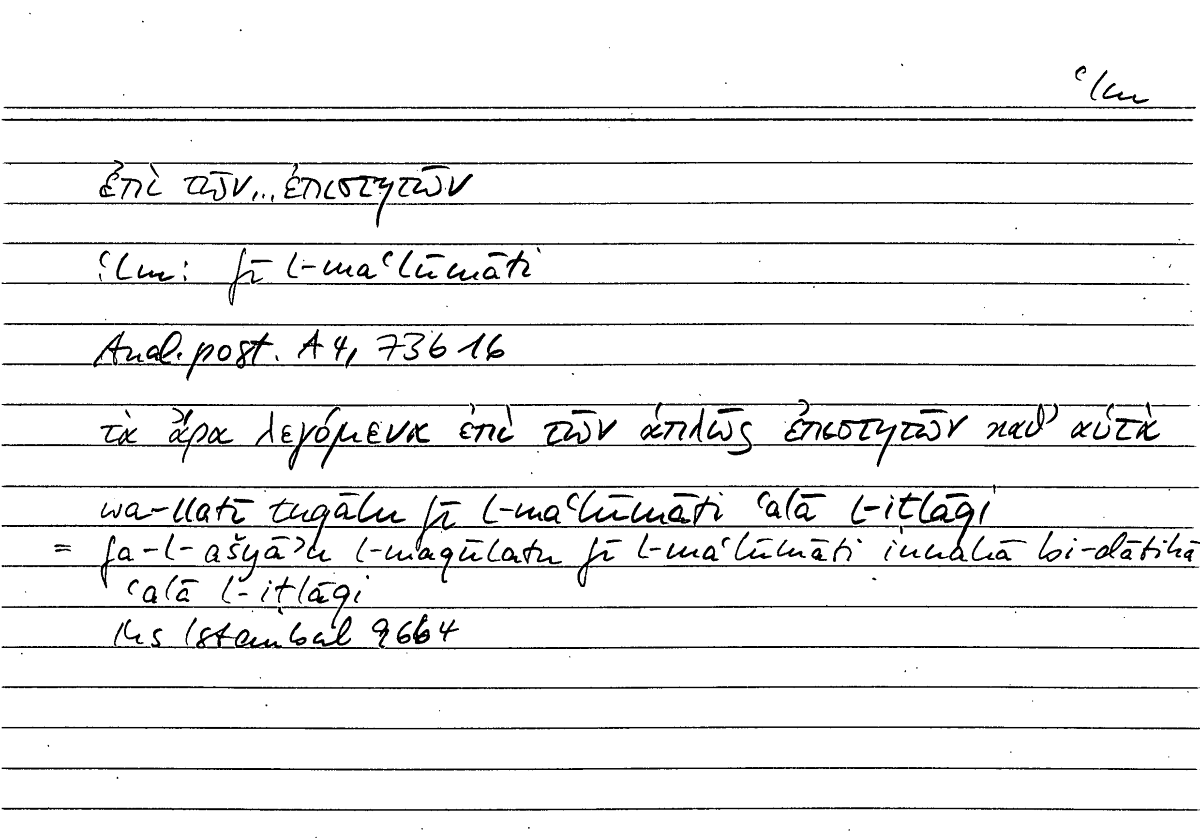 ʿlm
ἐπὶ τῶν... ἐπιστητῶν
ʿlm: fī l-maʿlūmāti
Anal. post. A 4, 73b16
τὰ ἄρα λεγόμενα ἐπὶ τῶν ἁπλῶς ἐπιστητῶν καθ' αὑτὰ
wa-llatī tuqālu fī l-maʿlūmāti ʿalā l-iṭlāqi
= fa-l-ašyāʾu l-maqūlatu fī l-maʿlūmāti innahā bi-ḏātihā
ʿalā l-iṭlāqi
Ms Istanbul 9664